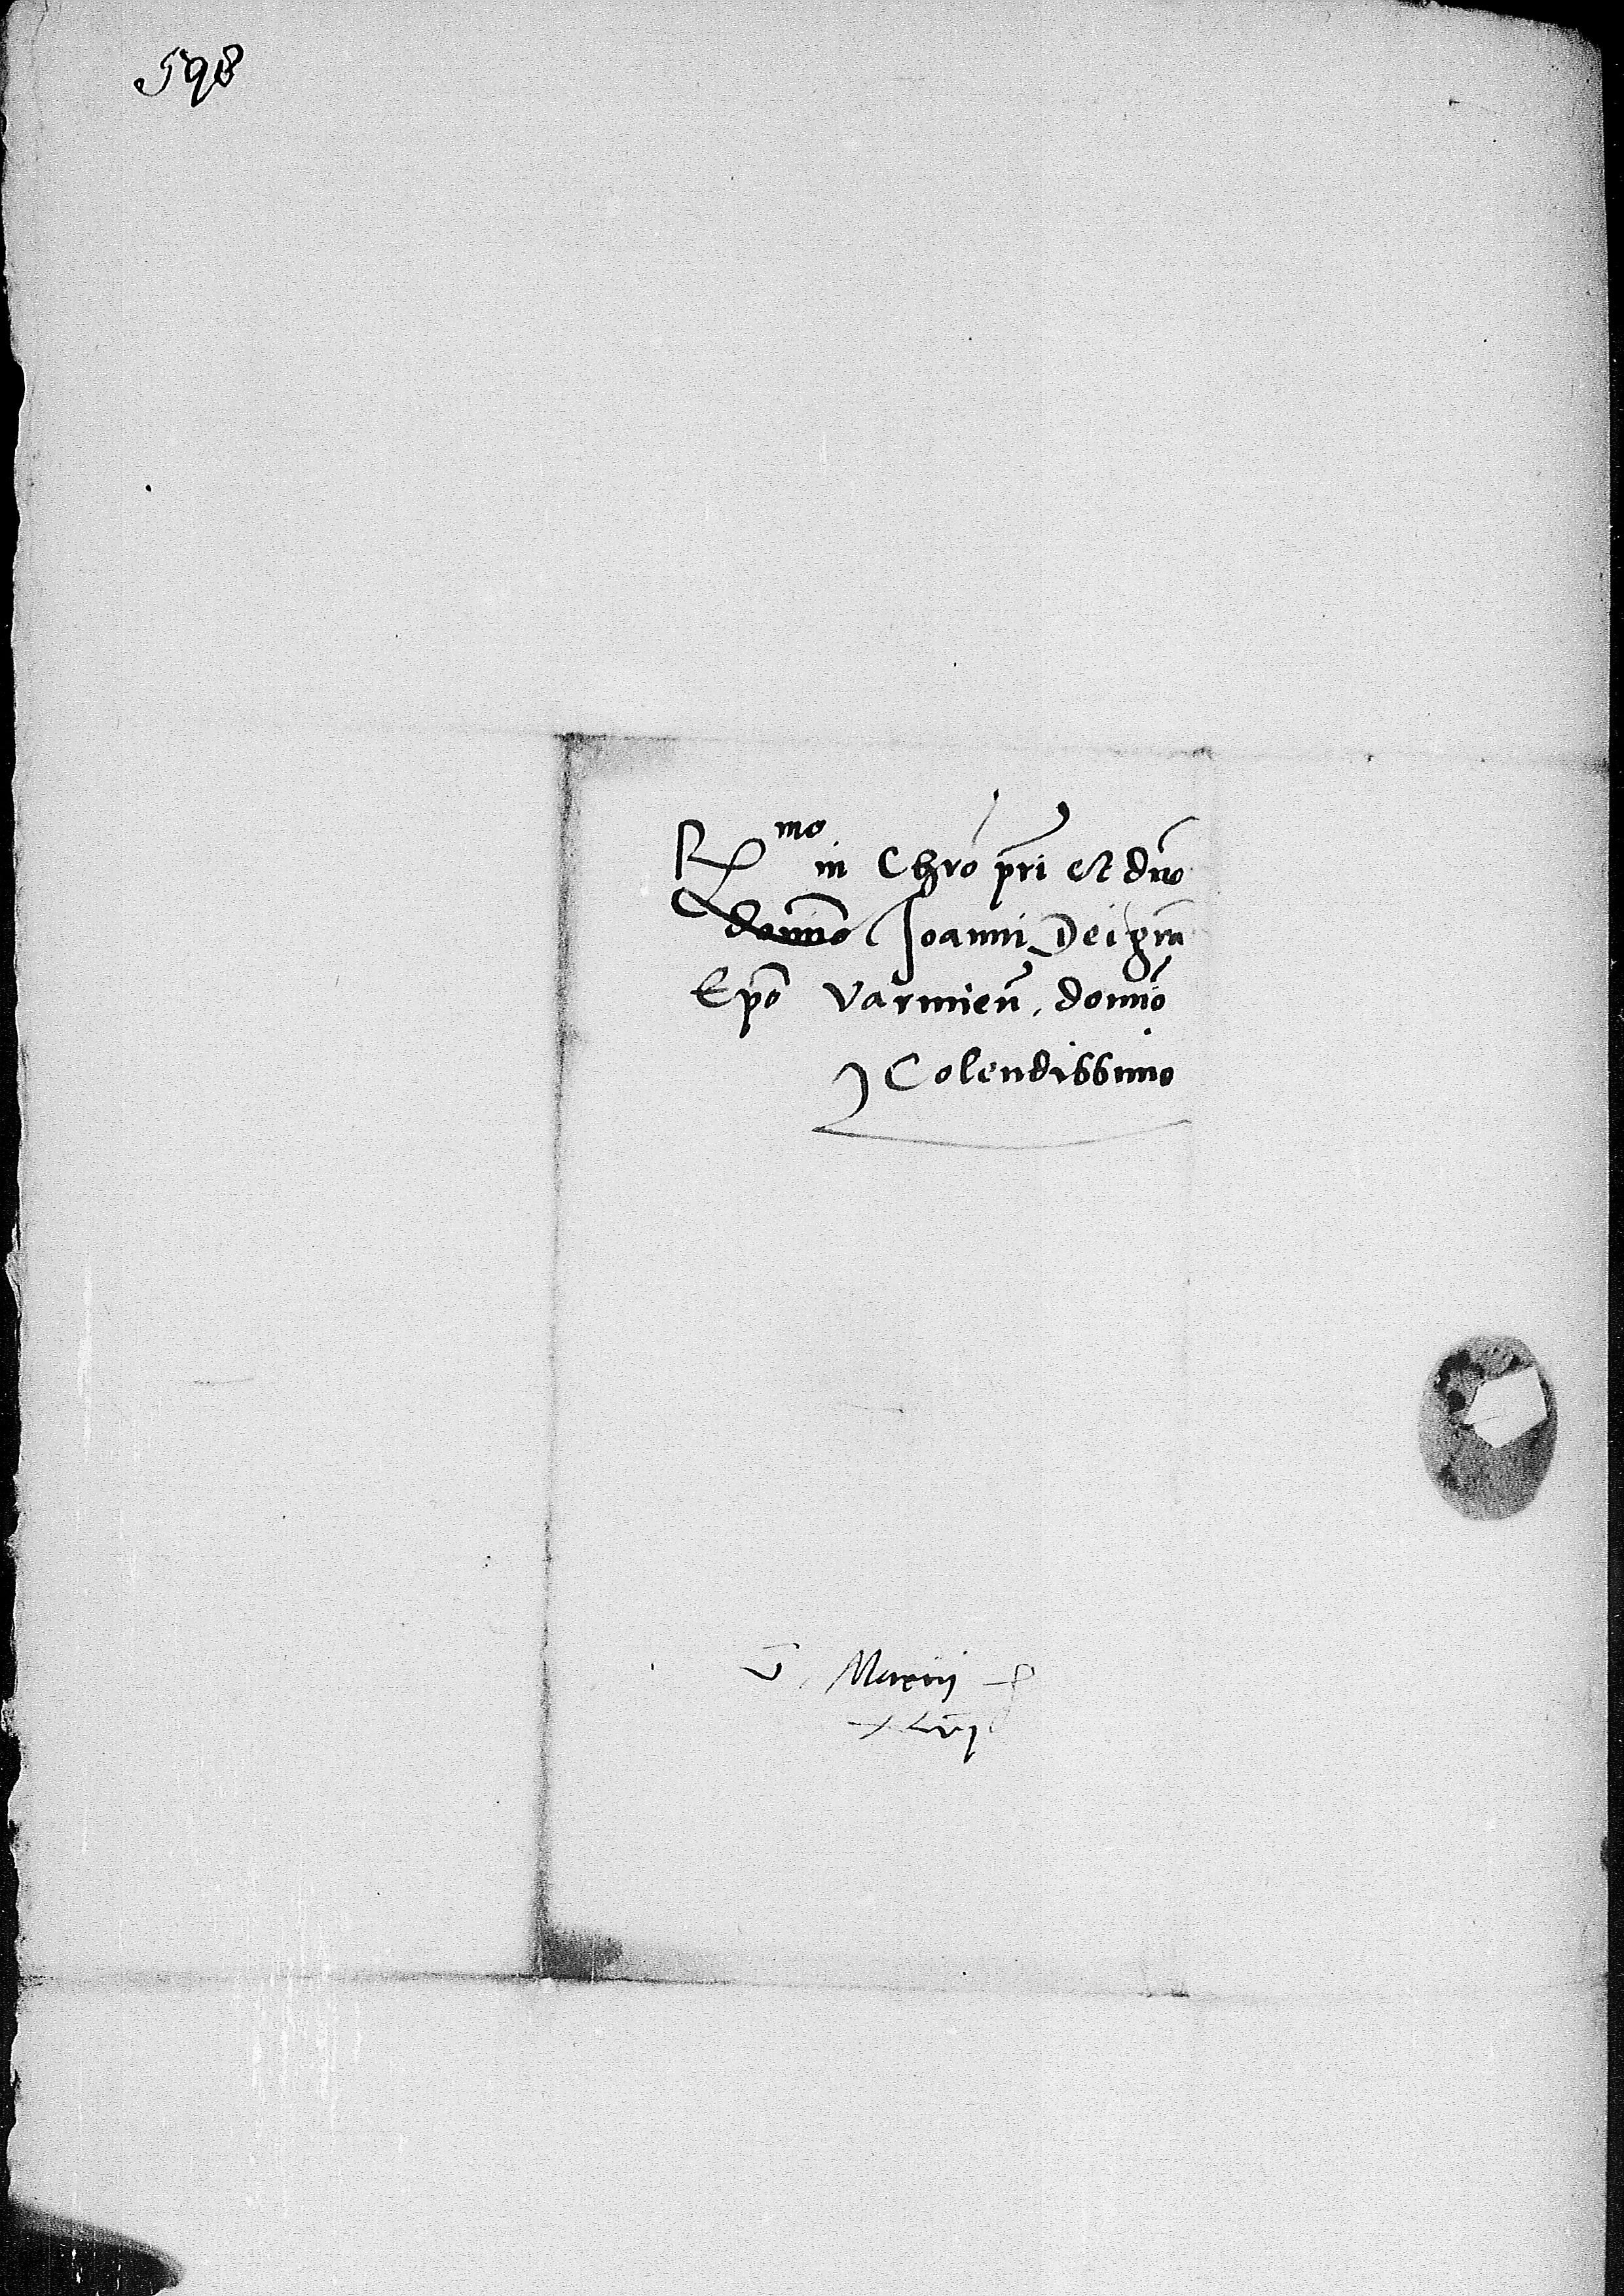 598
Rmo in Chro pri et dno
domino Ioanni Dei gra
Epo Varmien. domino
Colendissimo
v Marcii
xlvi